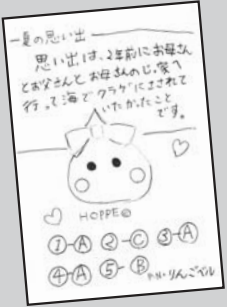 一夏の思い出一
思い出は、2年前にお母さん
とお父さんとお母さんのじっ家へ
行って海でクラゲにさされて
いたかったこと
です。
HOPPE
①-A ②-C ③-A
④-A ⑤-B
P.N.りんごパイ